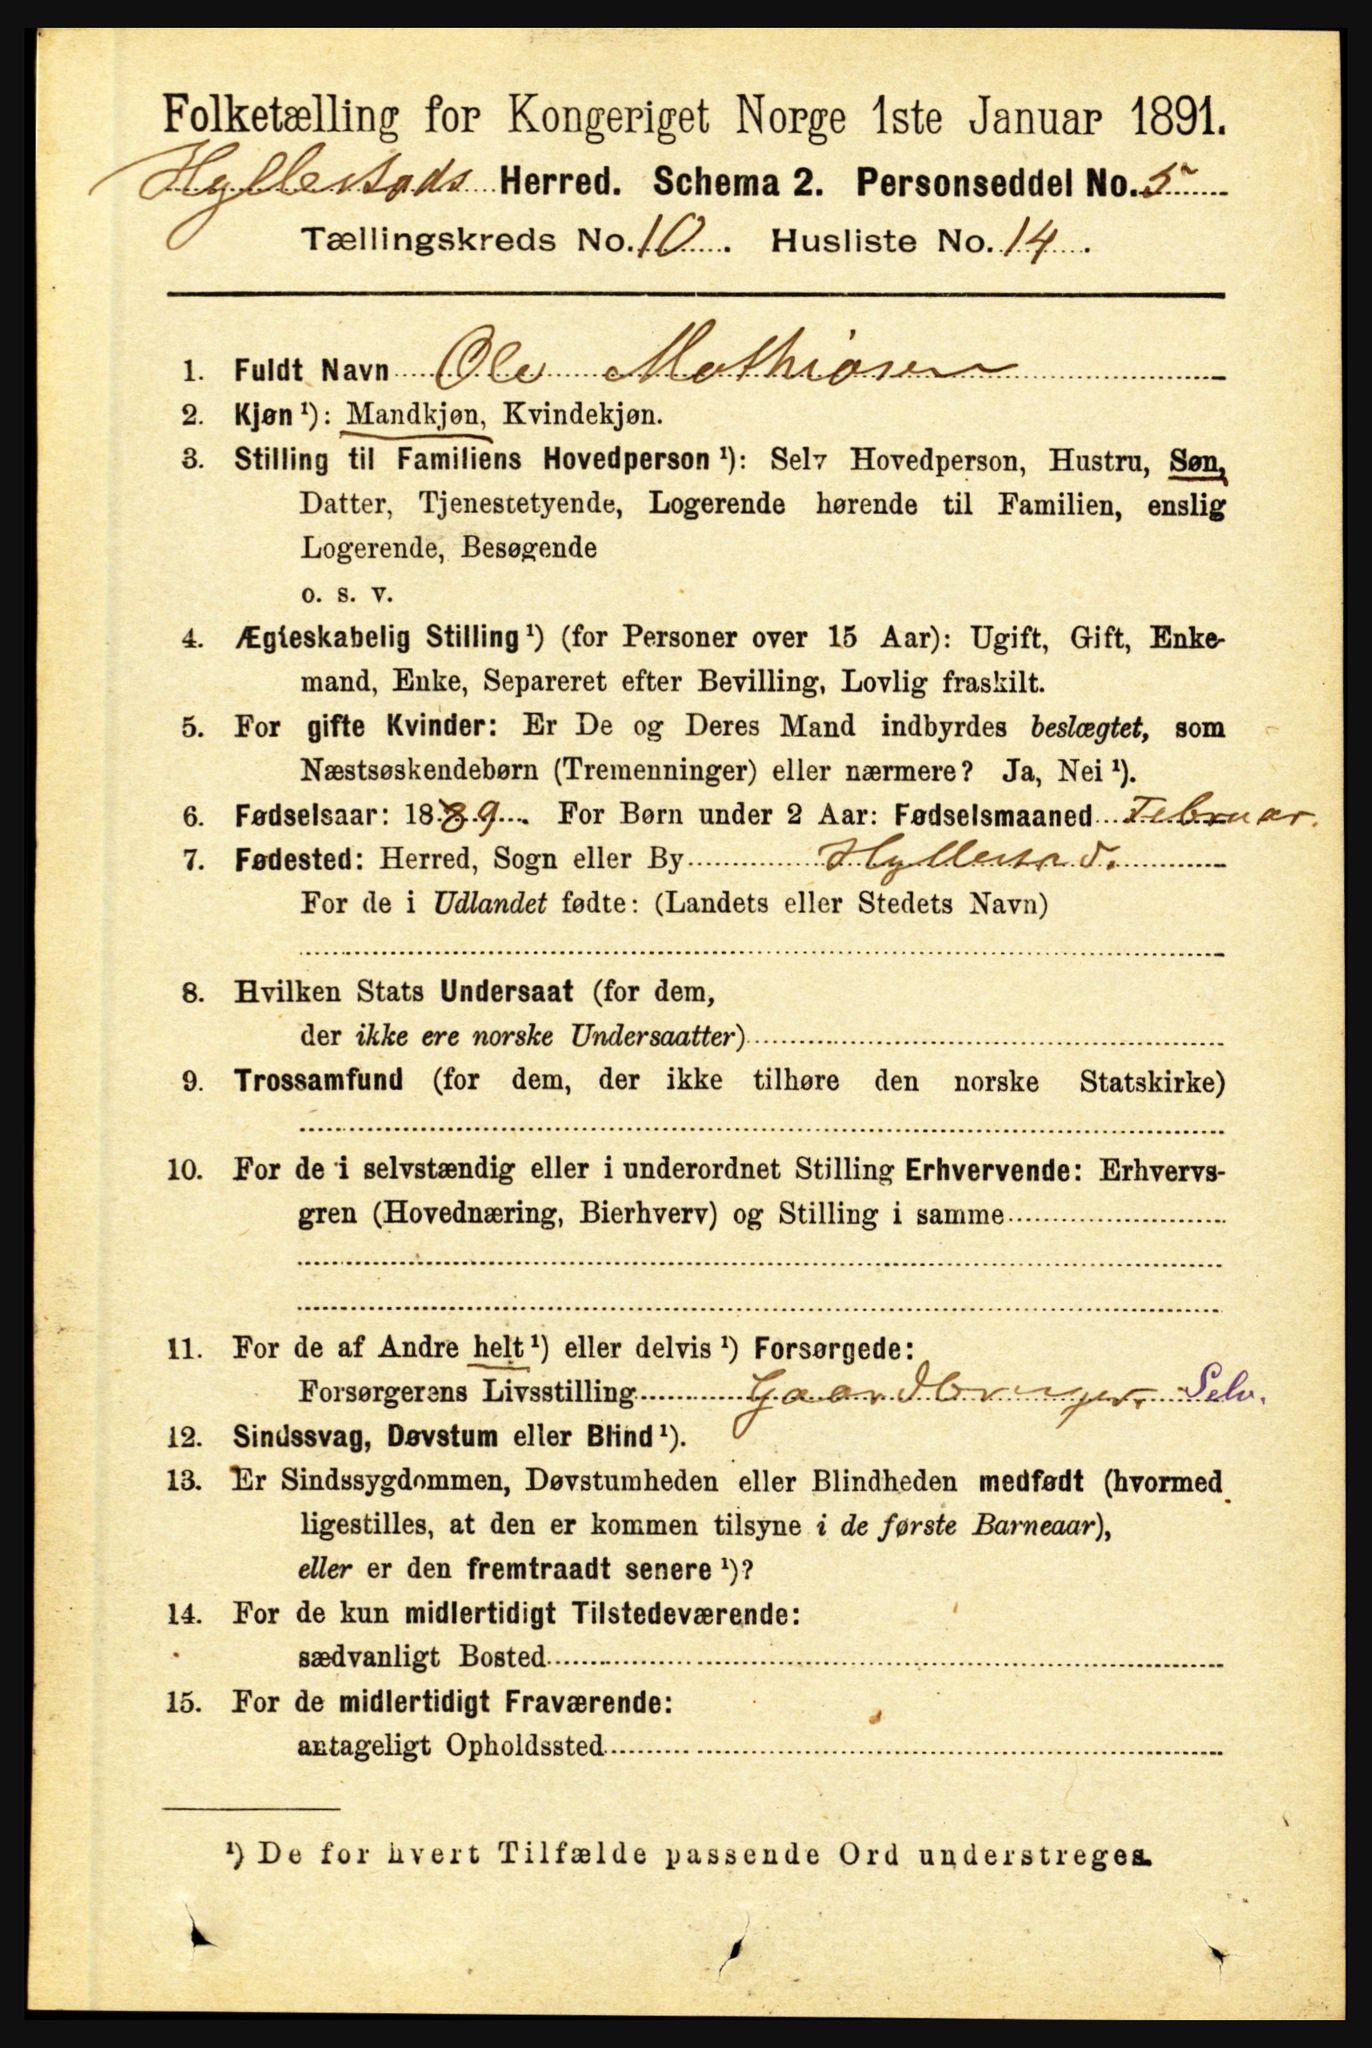 Folketælling for Kongeriget Norge 1ste Januar 1891.
Hyllestads Herred. Schema 2. Personseddel No. 5
Tællingskreds No. 10. Husliste No. 14.
1. Fuldt Navn Ole Mathiasen
2. Kjøn ¹): Mandkjøn, Kvindekjøn.
3. Stilling til Familiens Hovedperson ¹): Selv Hovedperson, Hustru, Søn,
Datter, Tjenestetyende, Logerende hørende til Familien, enslig
Logerende, Besøgende
o. s. v.
4. Ægteskabelig Stilling ¹) (for Personer over 15 Aar): Ugift, Gift, Enke-
mand, Enke, Separeret efter Bevilling, Lovlig fraskilt.
5. For gifte Kvinder: Er De og Deres Mand indbyrdes beslægtet, som
Næstsøskendebørn (Tremenninger) eller nærmere? Ja, Nei ¹).
6. Fødselsaar: 1889. For Børn under 2 Aar: Fødselsmaaned Februar.
7. Fødested: Herred, Sogn eller By Hyllestad.
For de i Udlandet fødte: (Landets eller Stedets Navn)
8. Hvilken Stats Undersaat (for dem,
der ikke ere norske Undersaatter)
9. Trossamfund (for dem, der ikke tilhøre den norske Statskirke)
10. For de i selvstændig eller i underordnet Stilling Erhvervende: Erhvervs-
gren (Hovednæring, Bierhverv) og Stilling i samme
11. For de af Andre helt ¹) eller delvis ¹) Forsørgede:
Forsørgerens Livsstilling Gaardbruger. Selv.
12. Sindssvag, Døvstum eller Blind ¹).
13. Er Sindssygdommen, Døvstumheden eller Blindheden medfødt (hvormed
ligestilles, at den er kommen tilsyne i de første Barneaar),
eller er den fremtraadt senere ¹)?
14. For de kun midlertidigt Tilstedeværende:
sædvanligt Bosted
15. For de midlertidigt Fraværende:
antageligt Opholdssted
¹) De for hvert Tilfælde passende Ord understreges.